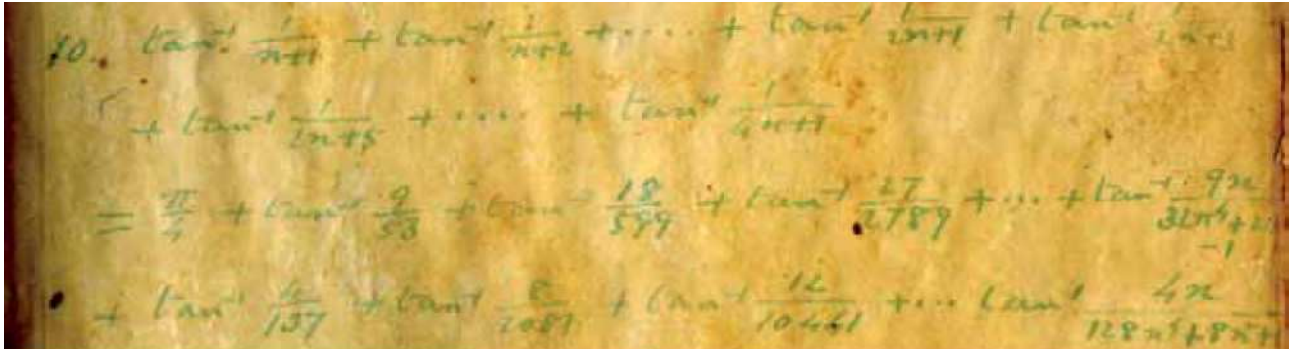 10. tan⁻¹ 1/(n+1) + tan⁻¹ 1/(n+2) + .... + tan⁻¹ 1/(2n+1) + tan⁻¹ 1/(2n+3)
+ tan⁻¹ 1/(2n+5) + .... + tan⁻¹ 1/(4n+1)
= π/4 + tan⁻¹ 9/53 + tan⁻¹ 18/599 + tan⁻¹ 27/2789 + ... + tan⁻¹ 9n/(32n⁴+2 -1)
+ tan⁻¹ 4/137 + tan⁻¹ 8/2081 + tan⁻¹ 12/10441 + ... tan⁻¹ 4n/(128n⁴+8n²+)